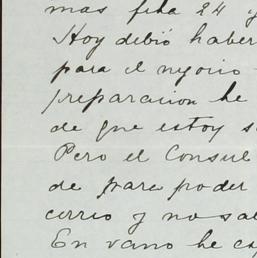 mas fila 24 y
Hoy debió haber
para el negocio
preparacion he
de que estoy s
Pero el Consul
de para poder
cerrio y no sal
En vano he es